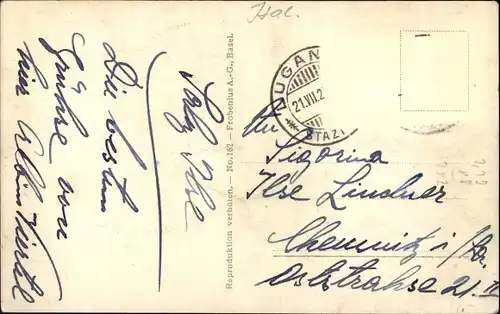 Ital.
Liebe Ilse
Die besten
Grüsse von
hier Albin Viertel
Reproduktion verboten. — No. 162 — Frobenius A.-G., Basel.
LUGANO
21.VII.2
STAZ
An
Sigorina
Ilse Lindner
Chemnitz i/Sa.
Oststrahse 21 II